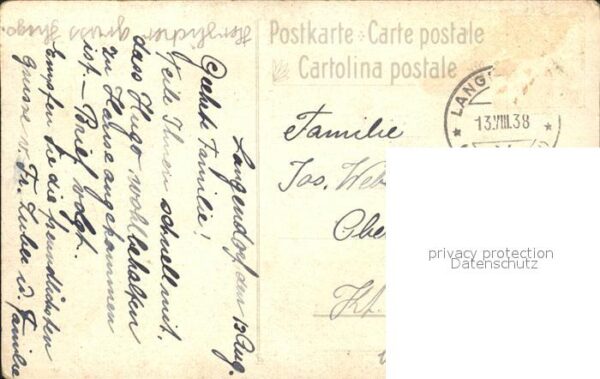 Herzlicher gruss Hugo.
Langendorf, den 13 Aug.
Geehrte Familie!
Teile Ihnen schnell mit,
dass Hugo wohlbehalten
zu Hause angekommen
ist. – Brief folgt.
Empfangen Sie die freundlichsten
Grüsse v. Fr. u. Familie
Postkarte · Carte postale
Cartolina postale
LANG
13.VIII.38
Familie
Jos. Web
Obe
Kt.
privacy protection
Datenschutz